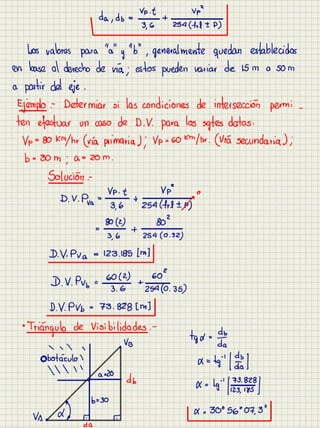 da, db = Vp.t / 3,6 + Vp² / 254(f,l ± P)
Los valores para "a" y "b", generalmente quedan establecidos
en base al derecho de vía; estos pueden variar de 15 m a 50 m
a partir del eje.
Ejemplo :- Determiar si las condiciones de intersección permi_
ten efectuar un caso de D.V. para los sgtes datos:
Vp = 80 km/hr (vía primaria); Vp = 60 km/hr. (Vía secundaria);
b = 30 m ; a = 20 m.
Solución.-
D.V.Pva = Vp.t / 3,6 + Vp² / 254(f,l ± p) 0
= 80(2) / 3,6 + 80² / 254 (0.32)
D.V.Pva = 123.185 [m]
D.V.Pvb = 60(2) / 3.6 + 60² / 254(0.35)
D.V.Pvb = 73.828 [m]
• Triángulo de Visibilidades.-
VB
Obstáculo
a=20
db
b=30
VA
α
da
tg α = db / da
α = tg⁻¹ [db / da]
α = tg⁻¹ [73.828 / 123,185]
α = 30° 56' 07,3"